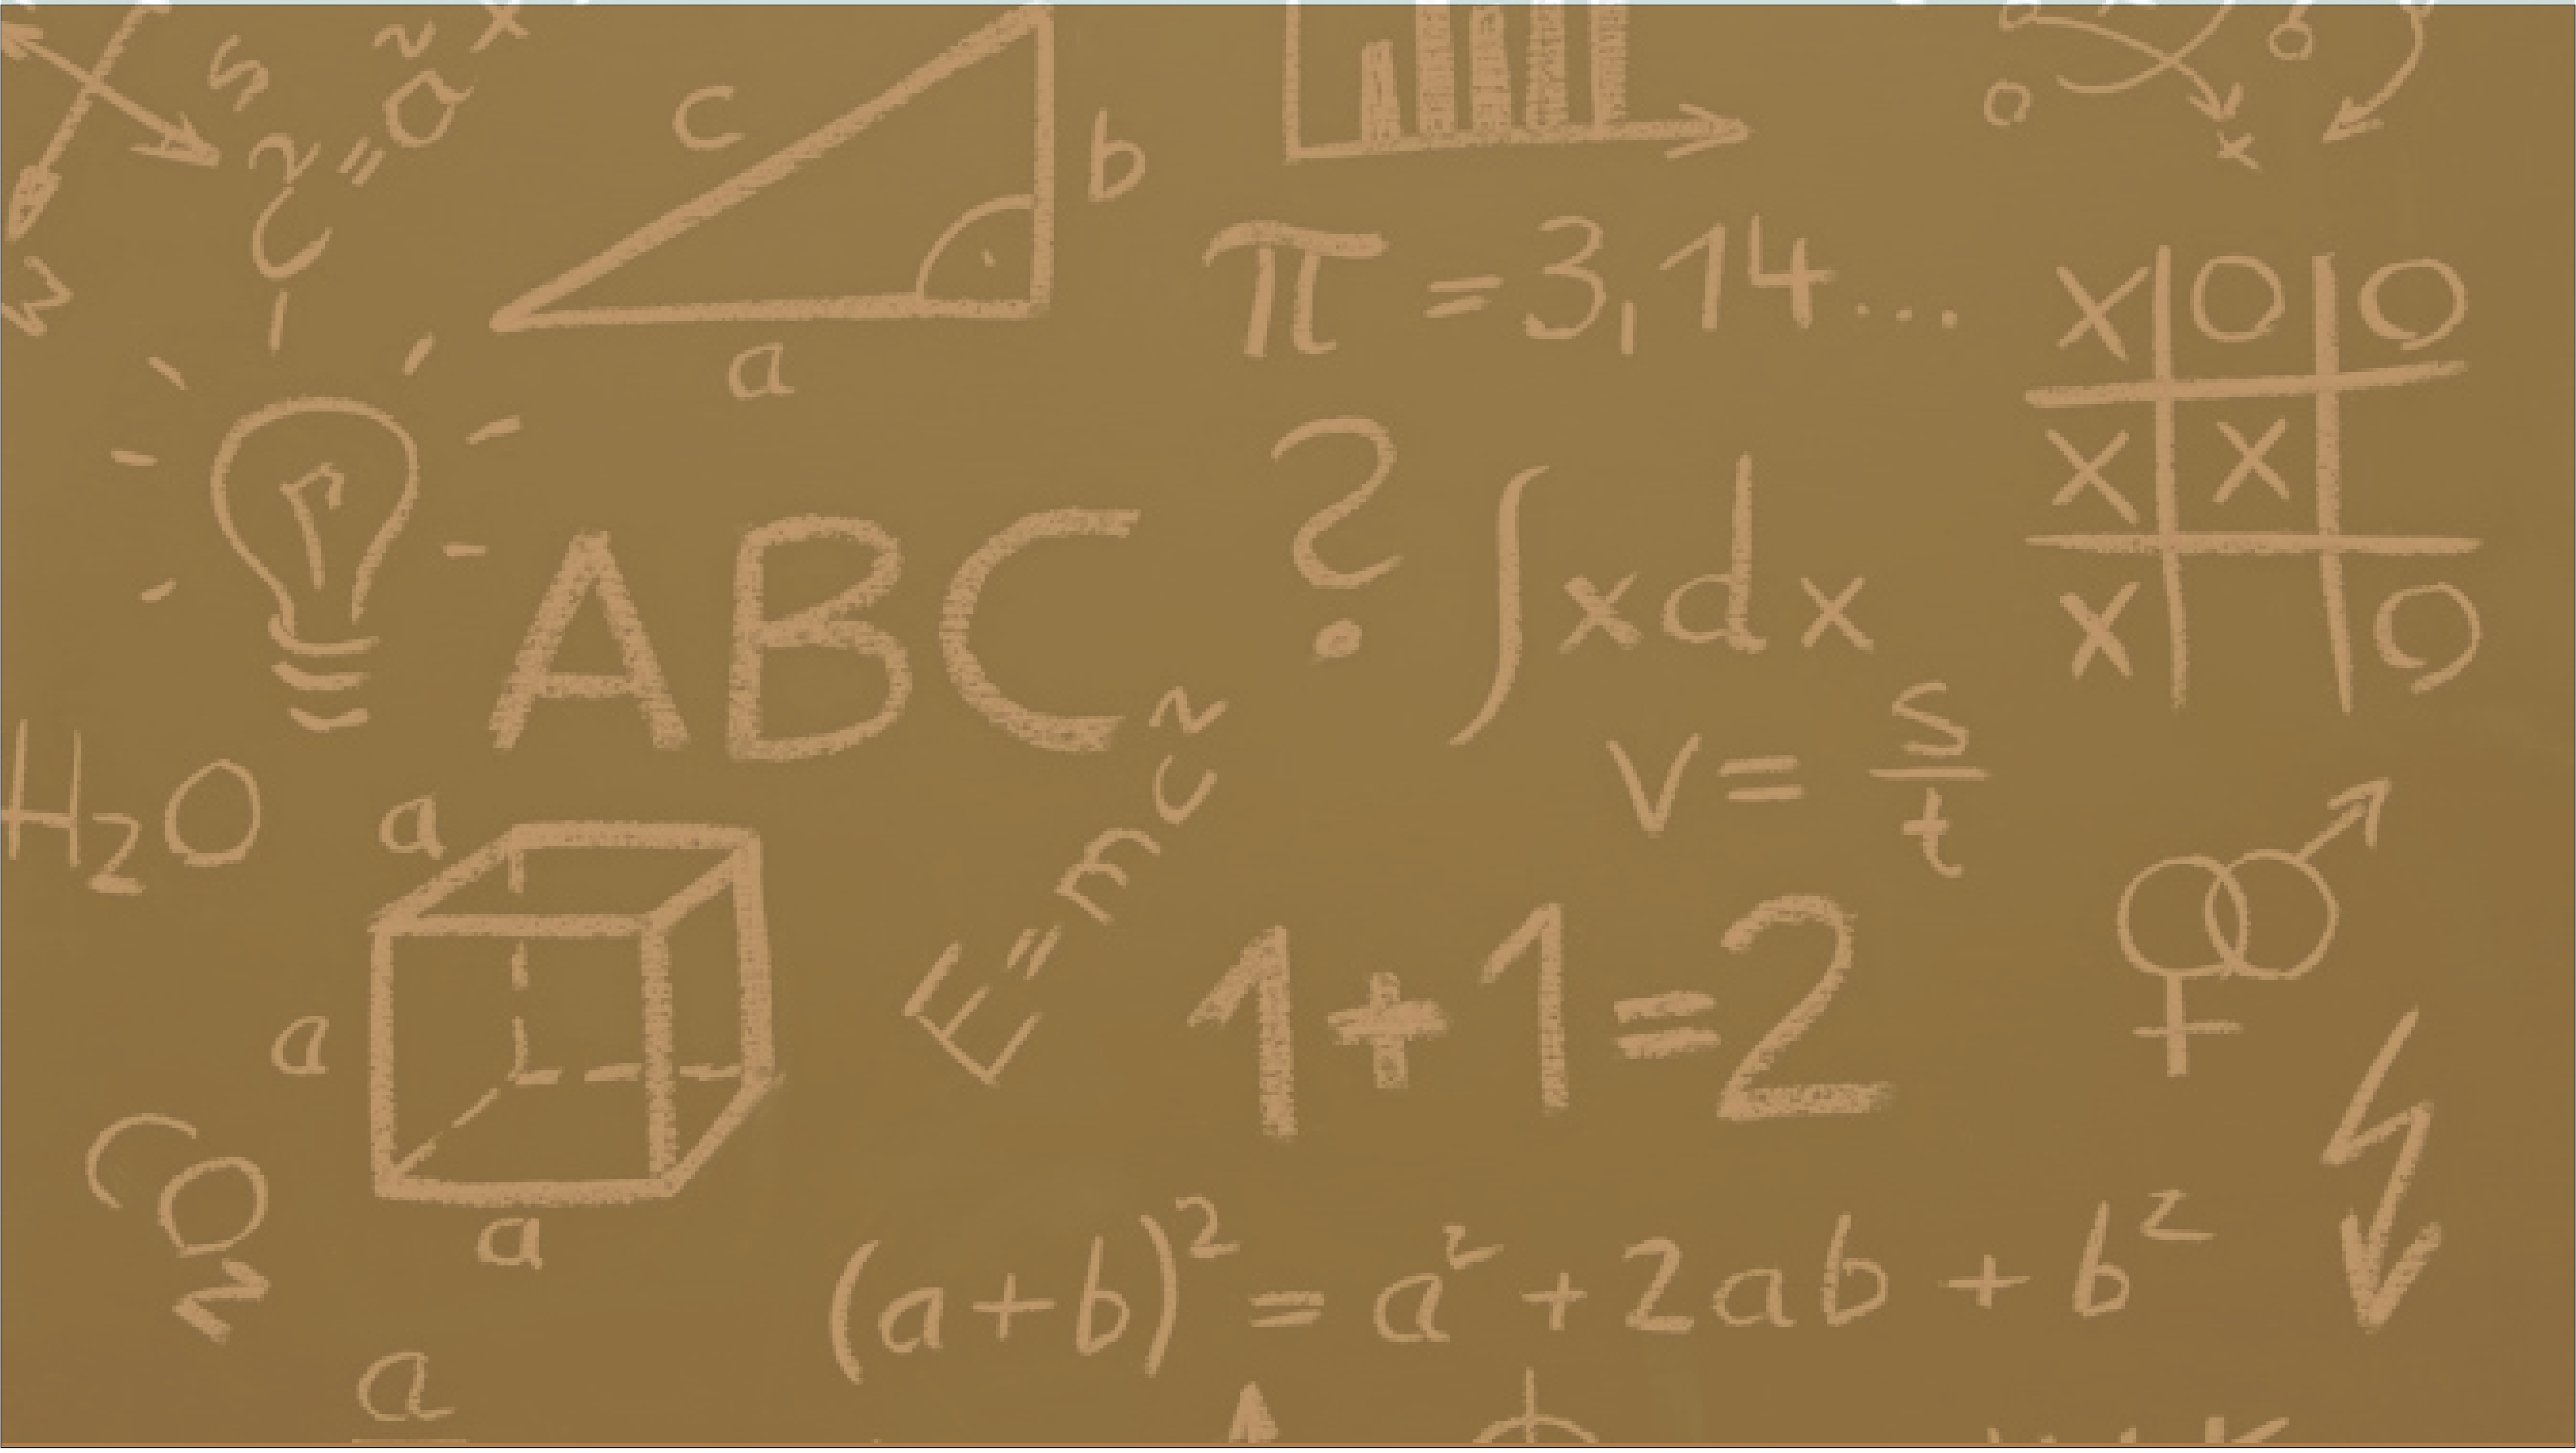 S
N
c² = a²
c
b
a
π = 3,14...
X O O
X X
X O
?
ABC
∫xdx
v = s/t
H₂O
a
a
a
E=mc²
1+1=2
CO₂
(a+b)² = a² + 2ab + b²
a